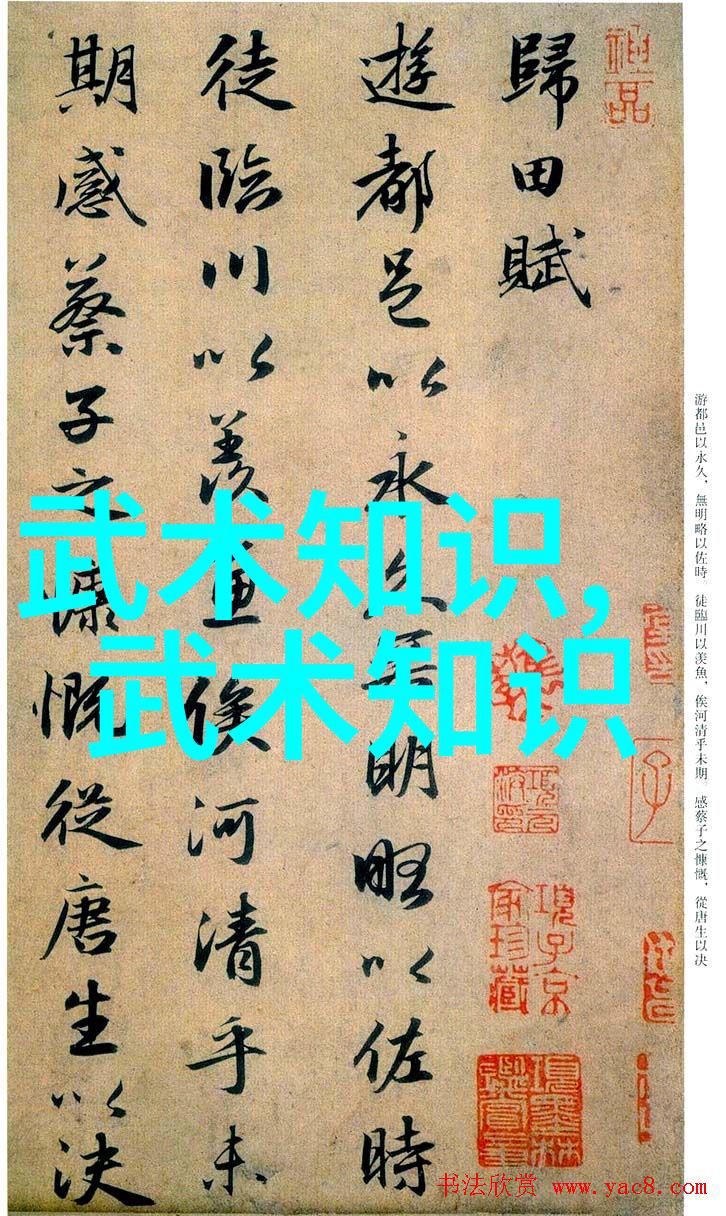 歸田賦
遊都邑以永久無明略以佐時
徒臨川以羨魚俟河清乎未
期感蔡子之慷慨從唐生以决
武术知识,
武术知识
游都邑以永久，無明略以佐時。徒臨川以羨魚，俟河清乎未期。感蔡子之慷慨，從唐生以决
項子京
家珍藏
项墨林
鑑賞章
子
书法欣赏 www.yac8.com